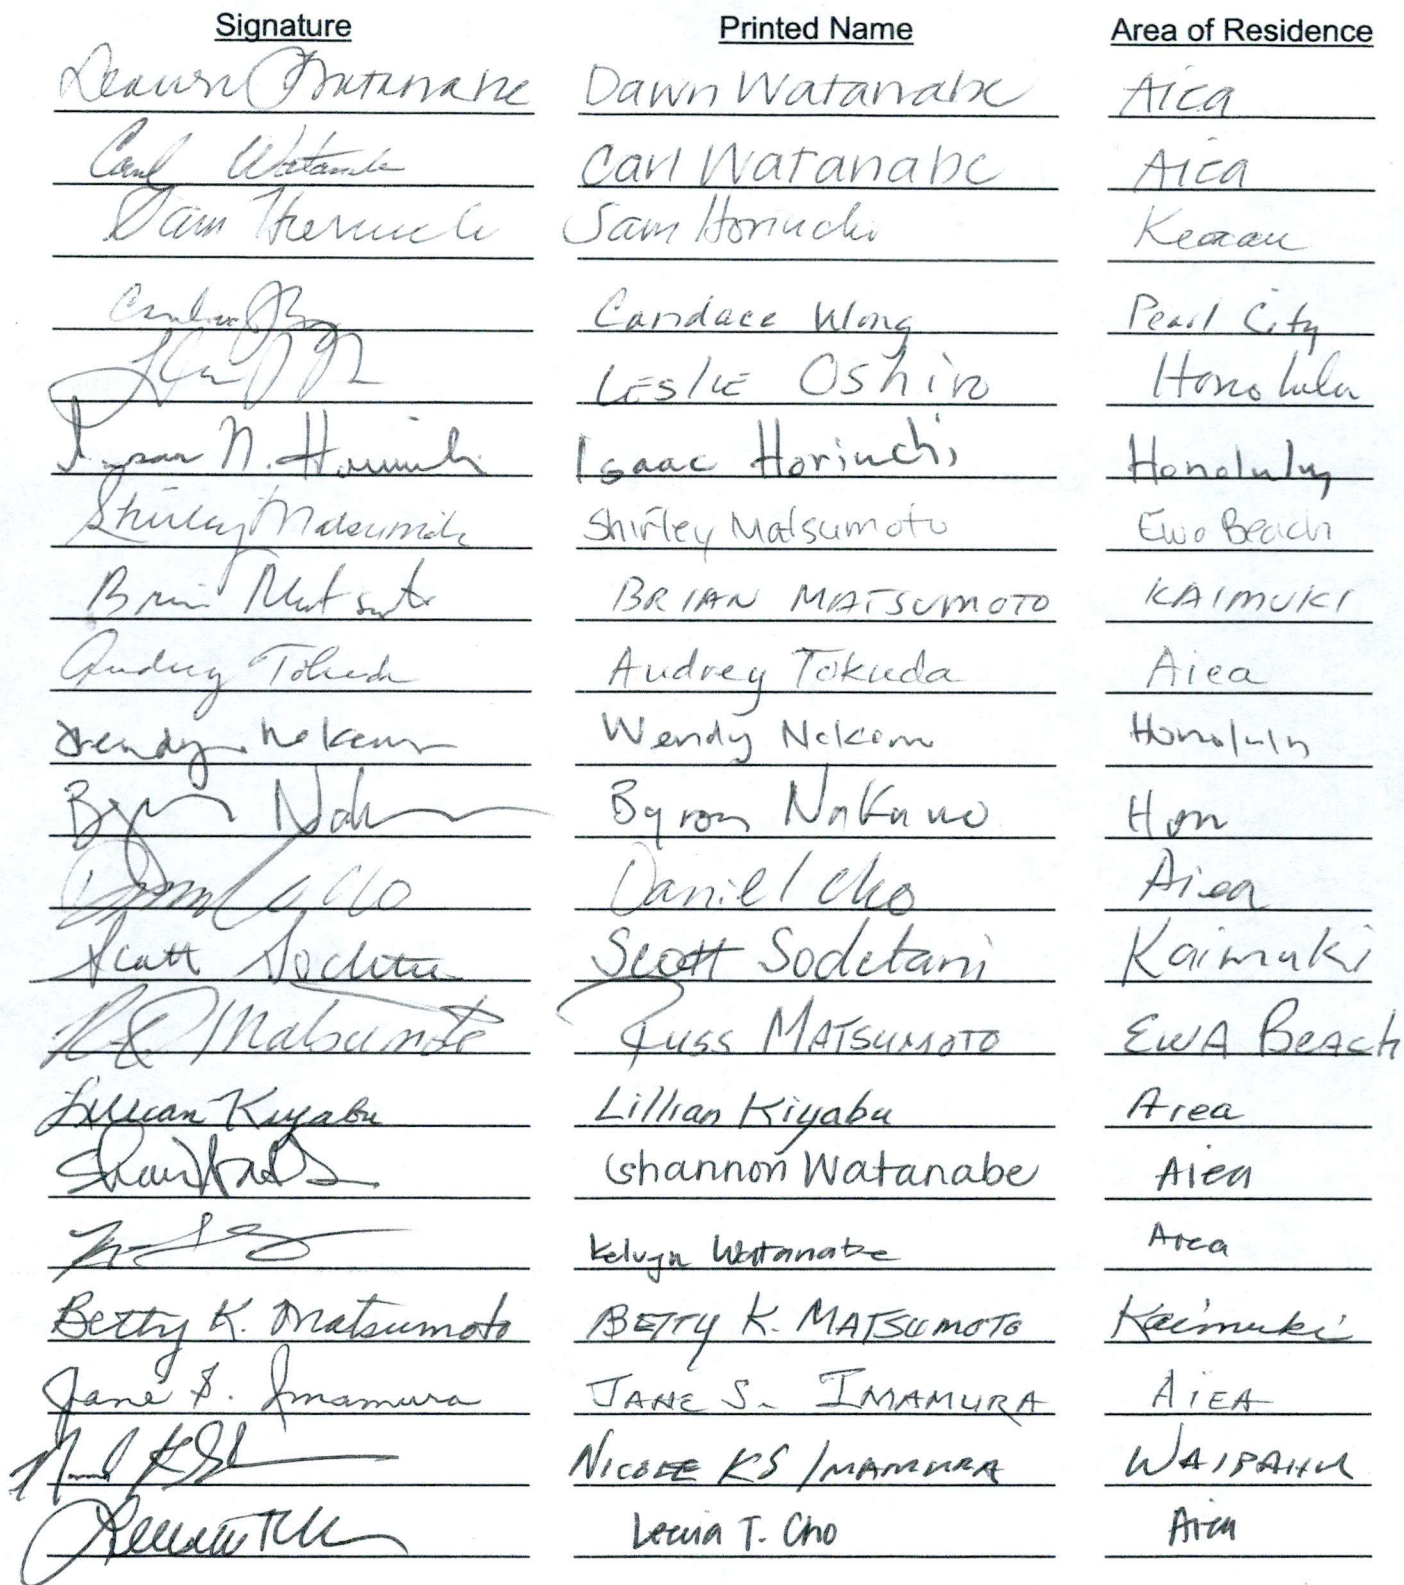 Signature Printed Name Area of Residence
Dawn Watanabe Dawn Watanabe Aiea
Carl Watanabe Carl Watanabe Aiea
Sam Horiuchi Sam Horiuchi Keaau
Candace Wong Pearl City
LESLIE OShiro Honolulu
N. Horiuchi Isaac Horiuchi Honolulu
Shirley Matsumoto Shirley Matsumoto Ewa Beach
Brian Matsumoto BRIAN MATSUMOTO KAIMUKI
Audrey Tokuda Audrey Tokuda Aiea
Wendy Nakano Wendy Nakano Honolulu
Byron Byron Nakano Hon
Daniel Cho Aiea
Scott Sodetani Scott Sodetani Kaimuki
Matsumoto Russ MATSUMOTO EWA BEACH
Lillian Kiyabu Lillian Kiyabu Aiea
Shannon Watanabe Aiea
Kelvyn Watanabe Aiea
Betty K. Matsumoto BETTY K. MATSUMOTO Kaimuki
Jane S. Imamura JANE S. IMAMURA AIEA
NICOLE KS IMAMURA WAIPAHU
T. Cho Aiea